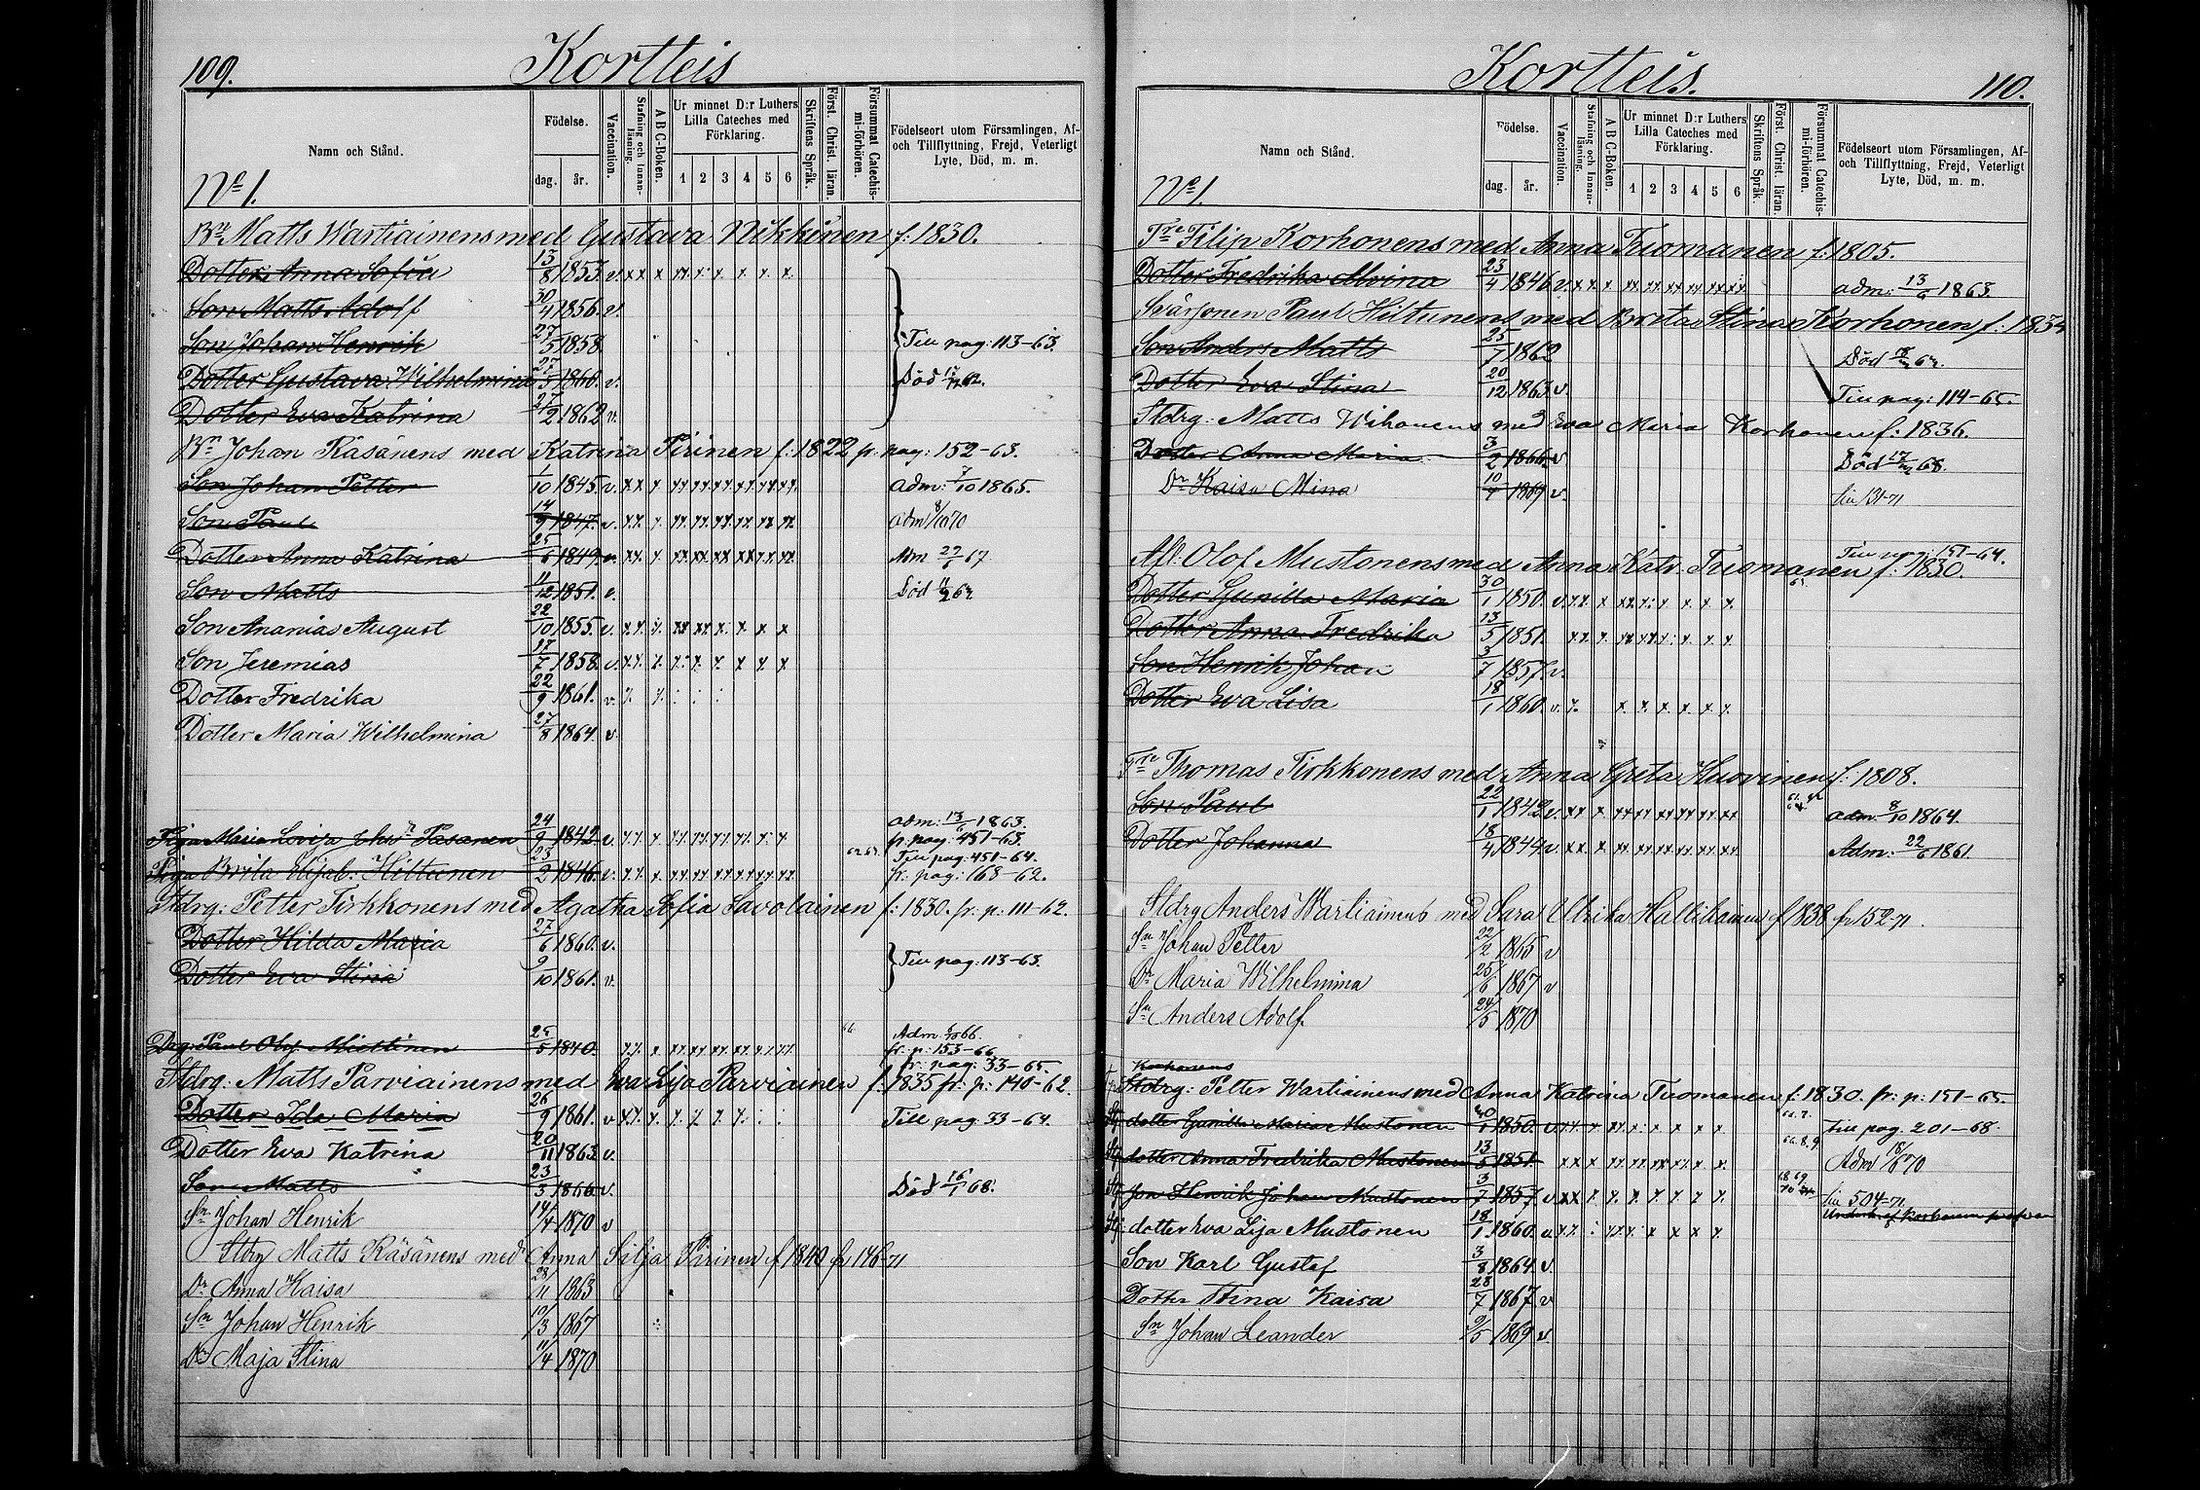 109.
Kortteis
Namn och Stånd.
Födelse.
dag. år.
Vaccination.
Stafning och Innanläsning.
A B C-Boken.
Ur minnet D:r Luthers Lilla Cateches med Förklaring.
1 2 3 4 5 6
Skriftens Språk.
Först. Christ. läran.
Försummat Catechismi-förhören.
Födelseort utom Församlingen, Af- och Tillflyttning, Frejd, Veterligt Lyte, Död, m. m.
No 1.
Bn Matts Wartiainens med Gustava Nikkinen f: 1830.
Dotter Anna Sofia 13/8 1853. v. x x x xx x x x x
Son Matts Adolf 30/4 1856. v.
Son Johan Henrik 27/5 1858. Till pag: 113-63.
Dotter Gustava Wilhelmina 27/5 1860. v. Död 62.
Dotter Eva Katrina 27/2 1862 v.
Bn Johan Räsänens med Katrina Pirinen f: 1822 fr. pag: 152-63.
Son Johan Petter 1/10 1845. v. x x x xx xx xx xx xx xx adm: 7/10 1865.
Son Paul 14/9 1847. v. x x. x. xx xx xx xx xx xx adm 8/10 70
Dotter Anna Katrina 25/6 1849. v. xx x. xx xx xx xx xx xx Adm 22/6 17
Son Matts 11/12 1851. v. Död
Son Ananias August 22/10 1855. v. x x. x. xx xx x. x x x
Son Jeremias 17/7 1858. v. x x. x. x. x. x x x x
Dotter Fredrika 22/9 1861. v. x. x.
Dotter Maria Wilhelmina 27/8 1864. v.
adm: 13/6 1863.
Piga Maria Lovisa Johs dr Pasanen 24/9 1842. v. x x. x xx xx xx xx. x. x fr. pag: 451-63.
Till pag: 451-64.
Piga Brita Elisab. Hiltunen 23/2 1846. v. x x. x. xx xx xx xx xx xx. fr. pag: 168-62.
Stdrg: Petter Tirkkonens med Agatha Sofia Savolainen f: 1830. fr. p: 111-62.
Dotter Hilda Maria 27/6 1860. v.
Dotter Eva Stina 9/10 1861. v. Till pag: 113-63.
66 Adm. 66.
Drg: Paul Olof Miettinen 25/5 1840. x x. x xx xx xx xx x x xx. fr. p: 153-66
fr: pag: 33-65.
Stdrg: Matts Parviainens med Eva Lisa Parviainen f. 1835 fr: p: 140-62.
Dotter Ida Maria 26/9 1861. v x x. x. x. x x x. Till pag 33-64.
Dotter Eva Katrina 20/11 1863 v.
Son Matts 23/3 1866 v. Död 16/1 68.
Sn Johan Henrik 14/4 1870 v
Stdrg Matts Räsänens med Anna Silja Pirinen f 1840 fr 146-71
Dr Anna Kaisa 28/11 1863
Sn Johan Henrik 10/3 1867
Dr Maja Stina 11/4 1870
Kortteis.
110.
Namn och Stånd.
Födelse.
dag. år.
Vaccination.
Stafning och Innanläsning.
A B C-Boken.
Ur minnet D:r Luthers Lilla Cateches med Förklaring.
1 2 3 4 5 6
Skriftens Språk.
Först. Christ. läran.
Försummat Catechismi-förhören.
Födelseort utom Församlingen, Af- och Tillflyttning, Frejd, Veterligt Lyte, Död, m. m.
No 1.
Tre Filip Korhonens med Anna Tuomanen f: 1805.
Dotter Fredrika Alvina 23/4 1846 v. x x x xx xx xx xx xx xx adm: 13/6 1863.
Svärsonen Paul Hiltunens med Brita Stina Korhonen f: 1834
Son Anders Matts 25/7 1862 Död
Dotter Eva Stina 20/12 1863 v. Till pag: 114-65.
Stdrg: Matts Wihonens med Eva Maria Korhonen f: 1836.
Dotter Anna Maria 3/2 1866 v Död 68.
Dr Kaisa Mina 10/4 1869 v. till 131-71
Till pag: 151-64.
Afl: Olof Mustonens med Anna Katr. Tuomanen f: 1830.
Dotter Gunilla Maria 30/1 1850. v. x x. x xx x x. x. x x.
Dotter Anna Fredrika 13/5 1851. x x x. xx xx x x. x x
Son Henrik Johan 3/7 1857. v.
Dotter Eva Lisa 18/1 1860. v. x. x. x. x. x. x x.
Tre Thomas Tirkkonens med Anna Greta Huovinen f: 1808.
Son Paul 22/1 1842 v. xx x xx xx xx xx xx xx adm: 8/10 1864.
Dotter Johanna 18/4 1844 v. x x. x xx xx xx xx xx xx Adm: 22/6 1861.
Stdrg Anders Wartiainens med Sara Ulrika Hallikainen f 1838 fr 152-71
Sn Johan Petter 22/2 1865 v
Dr Maria Wilhelmina 25/6 1867 v
Sn Anders Adolf 24/5 1870
Korhonens
Stdrg: Petter Wartiainens med Anna Katrina Tuomanen f: 1830. fr: p: 151-65.
Stj dotter Gunilla Maria Mustonen 30/1 1850. v. x x x xx x x. x x x till pag. 201-68.
Stj dotter Anna Fredrika Mustonen 13/5 1851. x x x xx xx xx xx x x. Adm 18/6 70
Stj Son Henrik Johan Mustonen 3/7 1857. v. xx x. x. x x. x. x x. 68 69 till 504-71
Stj dotter Eva Lisa Mustonen 18/1 1860. v. x x. x x x x x x x.
Son Karl Gustaf 3/8 1864 v.
Dotter Stina Kaisa 28/7 1867. v
Sn Johan Leander 9/5 1869 v